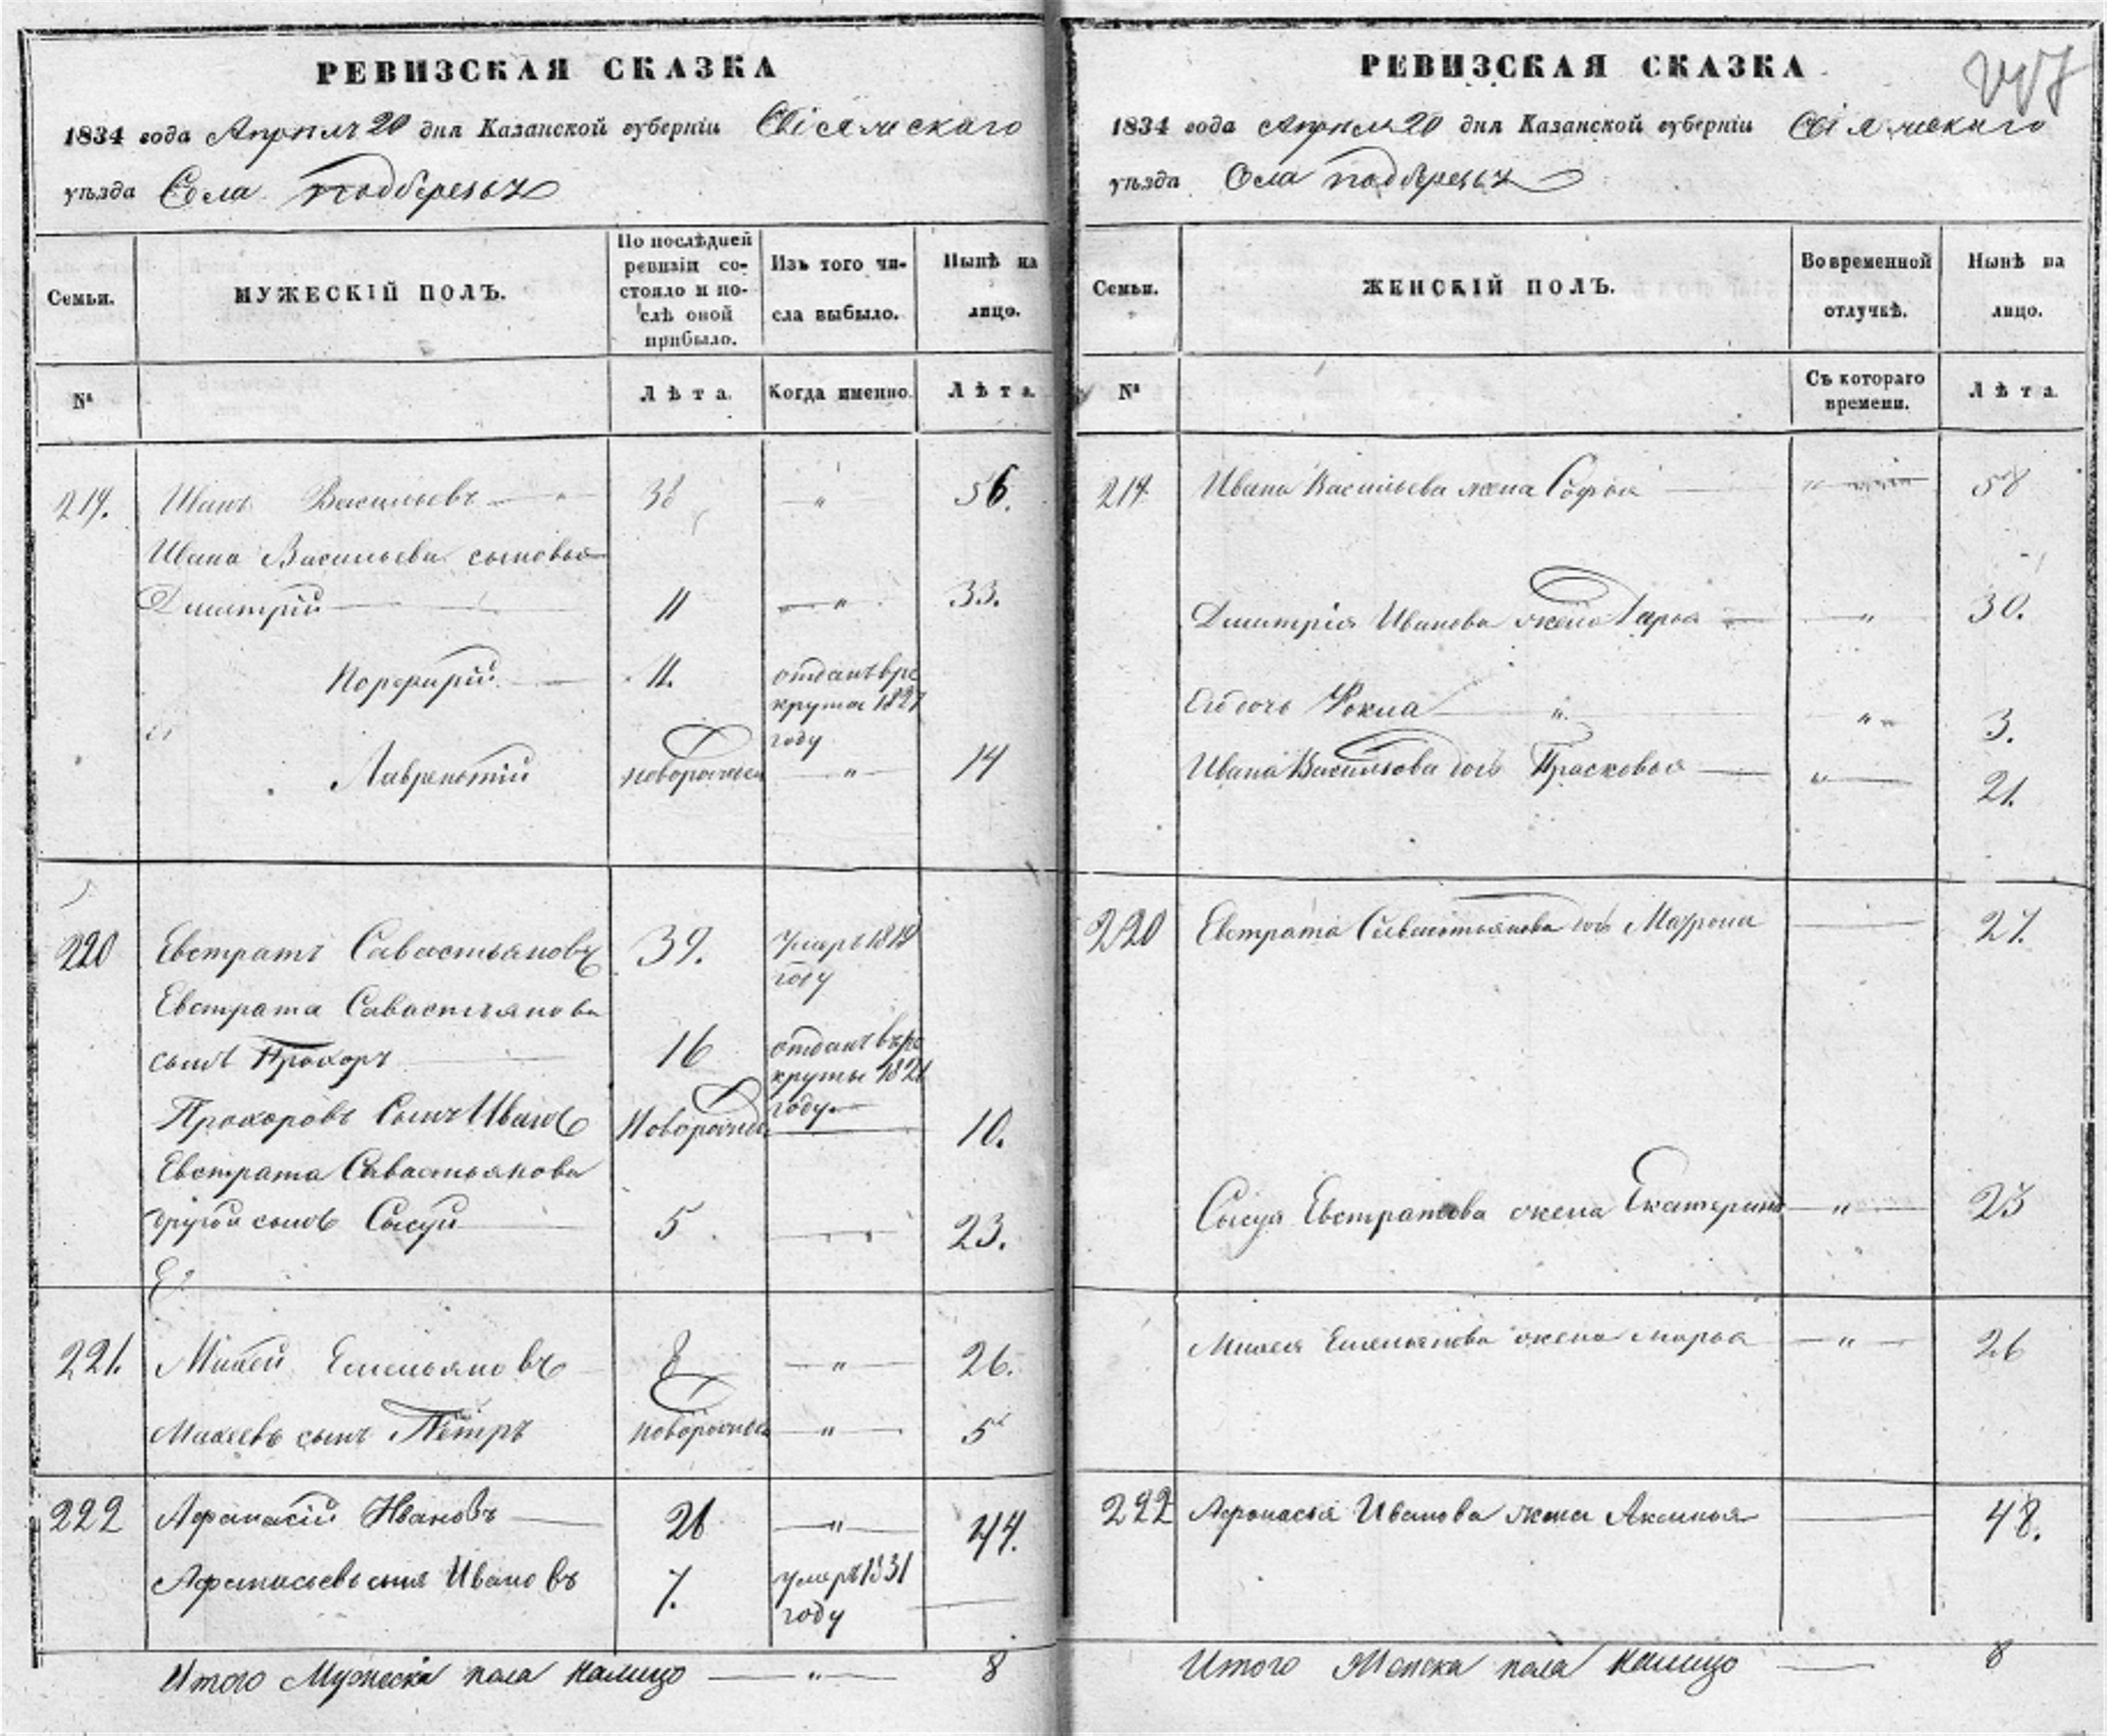 РЕВИЗСКАЯ СКАЗКА
1834 года Апреля 20 дня Казанской губерніи Свіяжскаго
уѣзда Села Подберезья
Семьи.
МУЖЕСКІЙ ПОЛЪ.
По послѣдней
ревизіи со-
стояло и по-
слѣ оной
прибыло.
Изъ того чи-
сла выбыло.
Нынѣ на
лицо.
№
Лѣта.
Когда именно.
Лѣта.
219. Иванъ Васильевъ 38 — " 56.
Ивана Васильева сыновья
Дмитрій 11 — " 33.
Порфирій 11. отданъ в ре
круты 1827
году
Лаврентій новорожден — " — 14
220 Евстратъ Савастьяновъ 39. умеръ 1819
году
Евстрата Савастьянова
сынъ Прохоръ 16 отданъ въ ре
круты 1821
году
Прохоровъ сынъ Иванъ новорожде — 10.
Евстрата Савастьянова
другой сынъ Сысуй 5 23.
221. Михей Емельяновъ 8 — " — 26.
Михеевъ сынъ Пётръ новорожден — " — 5
222 Афанасій Ивановъ — 26 — " — 44.
Афанасьевъ сынъ Ивановъ 7. умеръ 1831
году —
Итого Мужеска пола налицо — " — 8
РЕВИЗСКАЯ СКАЗКА
1834 года Апреля 20 дня Казанской губерніи Свіяжскаго
уѣзда Села Подберезья
Семьи.
ЖЕНСКІЙ ПОЛЪ.
Во временной
отлучкѣ.
Нынѣ на
лицо.
№
Съ котораго
времени.
Лѣта.
219 Ивана Васильева жена Софья 58
Дмитрія Иванова жена Дарья — " — 30.
Его дочь Фокла " " 3.
Ивана Васильева дочь Прасковья — " — 21.
220 Евстрата Савастьянова дочь Маѳрона — 27.
Сысуя Евстратова жена Екатерина — " — 23
Михея Емельянова жена Марья — " — 26
222 Афонасья Иванова жена Аксинья — 48.
Итого Женска пола налицо — 8